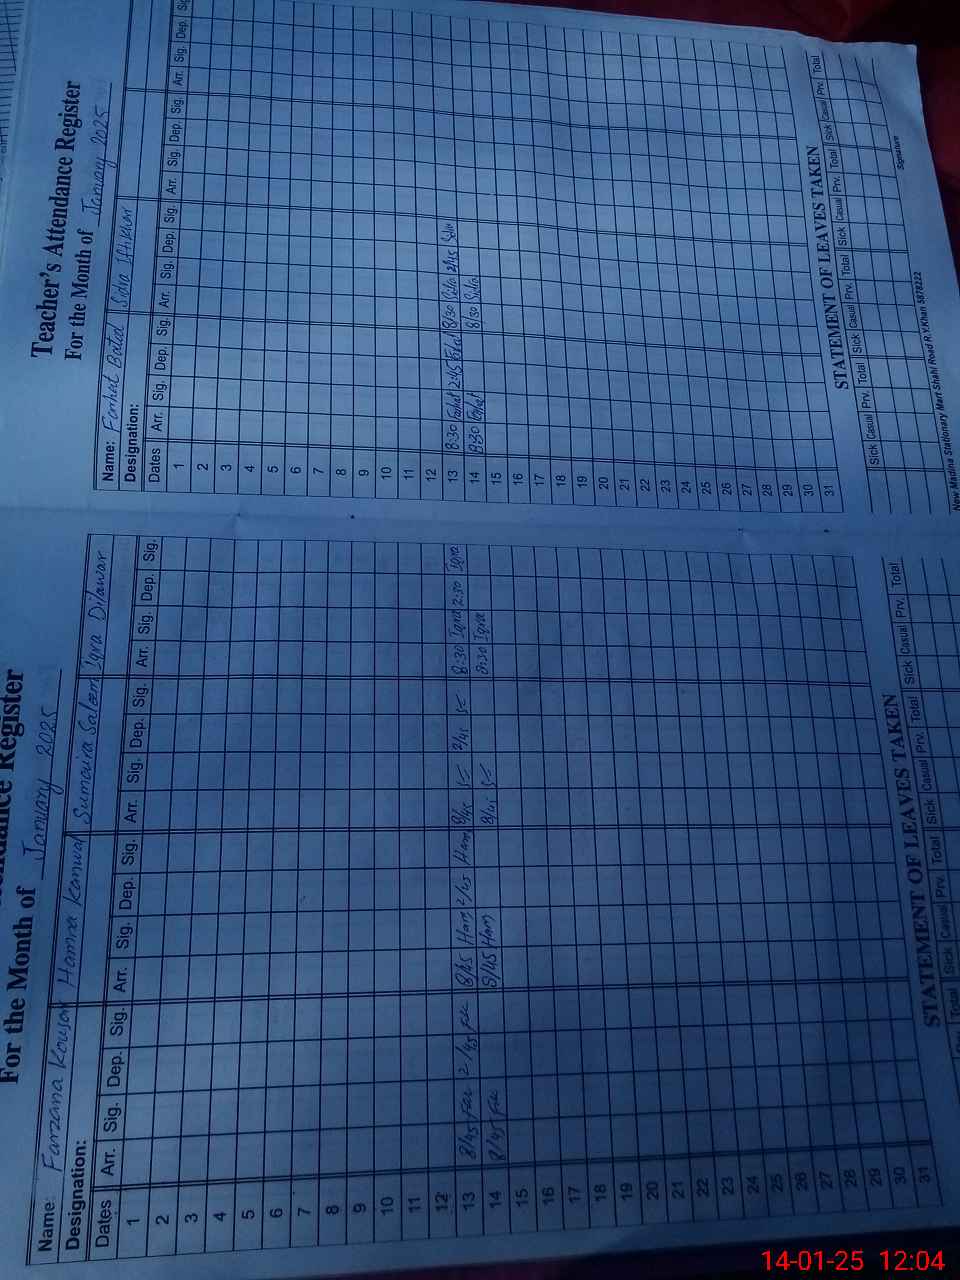 Teacher's Attendance Register
For the Month of January 2025
Name: Farzana Kousar Hamna Kanwal Sumaira Saleem Iqra Dilawar
Designation:
Dates Arr. Sig. Dep. Sig. Arr. Sig. Dep. Sig. Arr. Sig. Dep. Sig. Arr. Sig. Dep. Sig.
1
2
3
4
5
6
7
8
9
10
11
12
13 8/45 Far 2/45 8/45 Ham 2/45 Ham 8/45 2/45 8:30 Iqra 2:30 Iqra
14 8/45 8/45 Ham 8/45 8:30 Iqra
15
16
17
18
19
20
21
22
23
24
25
26
27
28
29
30
31
STATEMENT OF LEAVES TAKEN
Total Sick Casual Prv. Total Sick Casual Prv. Total Sick Casual Prv. Total
Teacher's Attendance Register
For the Month of January 2025
Name: Farhat Batol Sidra Iftikhar
Designation:
Dates Arr. Sig. Dep. Sig. Arr. Sig. Dep. Sig. Arr. Sig. Dep. Sig. Arr. Sig. Dep. Sig.
1
2
3
4
5
6
7
8
9
10
11
12
13 8:30 Farhat 2:45 Farhat 8/30 Sidra 2/45 Sidra
14 8:30 Farhat 8/30 Sidra
15
16
17
18
19
20
21
22
23
24
25
26
27
28
29
30
31
STATEMENT OF LEAVES TAKEN
Sick Casual Prv. Total Sick Casual Prv. Total Sick Casual Prv. Total Sick Casual Prv. Total
Signature
New Madina Stationary Mart Shahi Road R.Y.Khan 5878222
14-01-25 12:04